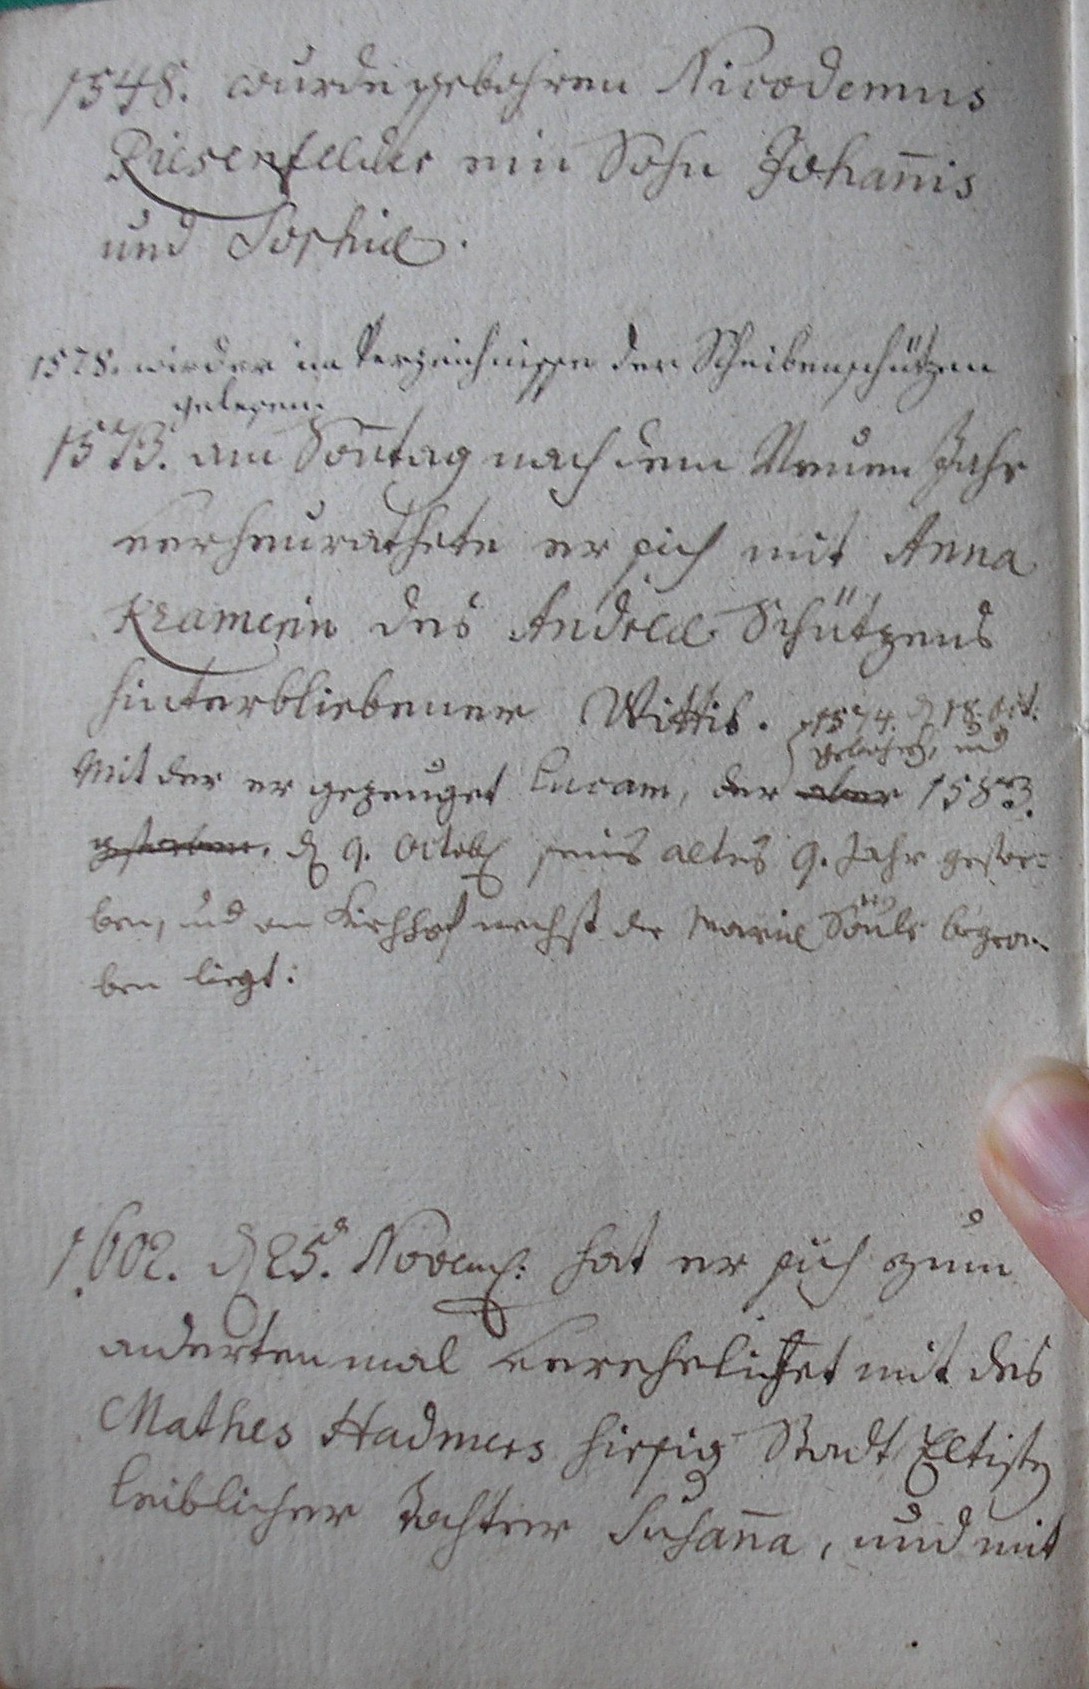 1548. wurde gebohren Nicodemus
Riesenfelder ein Sohn Johañis
und Sophiæ.
1578. wird er im Verzeichnisse der Scheibenschützen
gelesen.
1573. am Soñtag nach dem Neuen Jahr
verheurathete er sich mit Anna
Kramerin des Andreæ Schützens
hinterbliebener Wittib. 1574. d 18. Oct.
gebohrn, und
Mit der er gezeuget Lucam, der aber 1583.
gestorben. d 9. Octob seins altes 9. Jahr gestor=
ben, und am Kirchhof nechst der Mariæ Säule begra=
ben liegt.
1602. d 25. Novem: hat er sich zum
anderten mal verehelichet mit des
Mathes Hadmers hiesig Stadt Eltisten
leiblicher Tochter Susaña, und mit